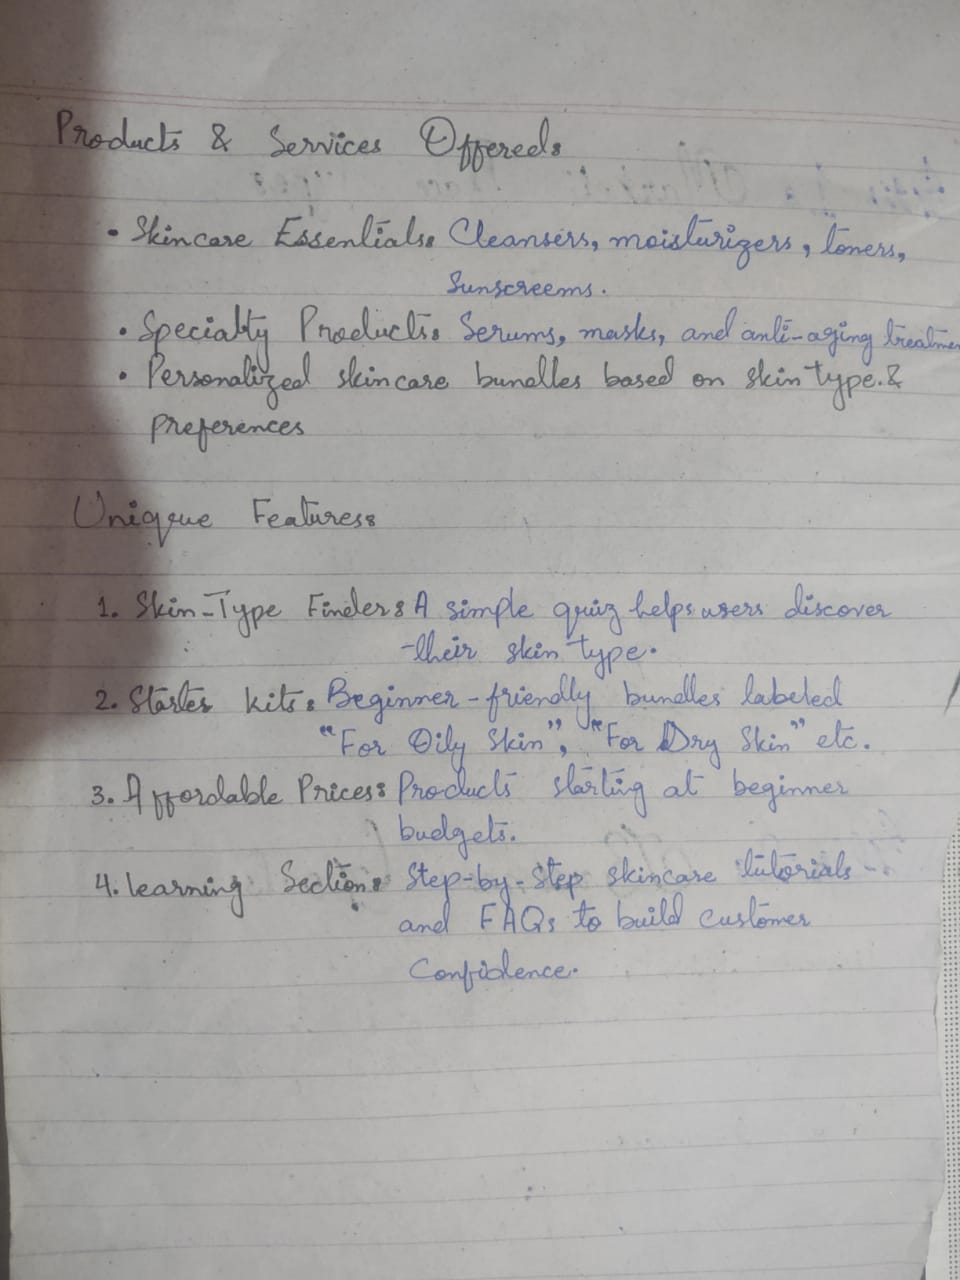 Products & Services Offered:
• Skincare Essentials: Cleansers, moisturizers, toners,
Sunscreems.
• Specialty Products: Serums, masks, and anti-aging treatmen
• Personalized skincare bundles based on skin type. &
preferences
Uniqque Features:
1. Skin-Type Finder: A simple quiz helps users discover
their skin type.
2. Starter kits: Beginner-friendly bundles labeled
"For Oily Skin", "For Dry Skin" etc.
3. Affordable Prices: Products starting at beginner
budgets.
4. Learning Section: Step-by-Step skincare tutorials -
and FAQs to build customer
Confidence.